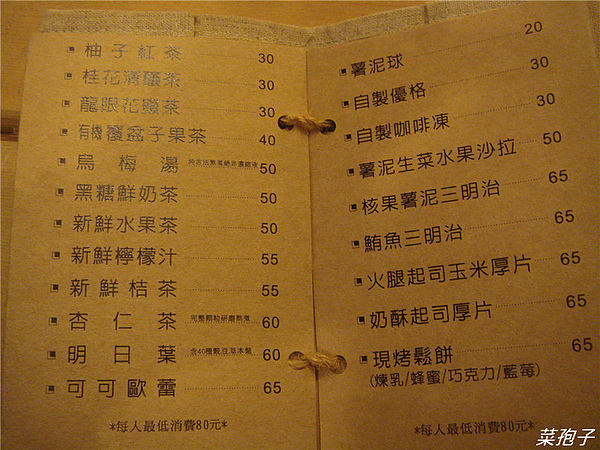 柚子紅茶 30
桂花酒釀茶 30
龍眼花釀茶 30
有機覆盆子果茶 40
烏梅湯 純古法熬煮絕非濃縮液 50
黑糖鮮奶茶 50
新鮮水果茶 50
新鮮檸檬汁 55
新鮮桔茶 55
杏仁茶 完整顆粒研磨熬煮 60
明日葉 含40種穀.豆.草本類 60
可可歐蕾 65
*每人最低消費80元*
薯泥球 20
自製優格 30
自製咖啡凍 30
薯泥生菜水果沙拉 50
核果薯泥三明治 65
鮪魚三明治 65
火腿起司玉米厚片 65
奶酥起司厚片 65
現烤鬆餅 65
(煉乳/蜂蜜/巧克力/藍莓)
*每人最低消費80元*
菜孢子